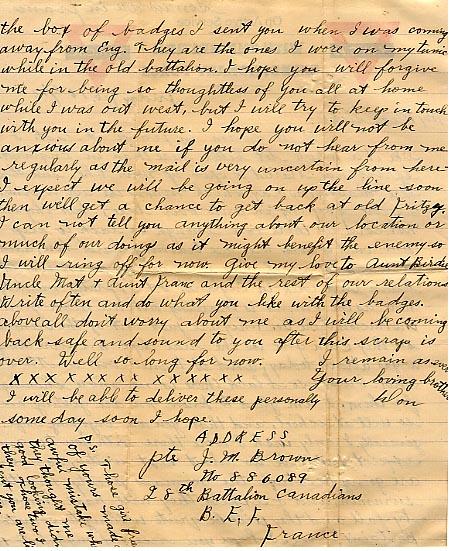 the box of badges I sent you when I was coming
away from Eng. They are the ones I wore on my tunic
while in the old battalion. I hope you will forgive
me for being so thoughtless of you all at home
while I was out west, but I will try to keep in touch
with you in the future. I hope you will not be
anxious about me if you do not hear from me
regularly as the mail is very uncertain from here
I expect we will be going on up the line soon
then will get a chance to get back at old Fritzy.
I can not tell you anything about our location or
much of our doings as it might benefit the enemy so
I will ring off for now. Give my love to Aunt Birdie
Uncle Mat + Aunt Franc and the rest of our relations
Write often and do what you like with the badges.
above all don't worry about me as I will be coming
back safe and sound to you after this scrap is
over. Well so long for now. I remain as ever
xxx xxxxx xxxxxx Your loving brother
I will be able to deliver these personally
some day soon I hope.
ADDRESS
pte J. M. Brown
No 886089
28th Battalion Canadians
B. E. F.
France
P.S. Those girl
of yours made
awful mistake wh
they thought me
good looking